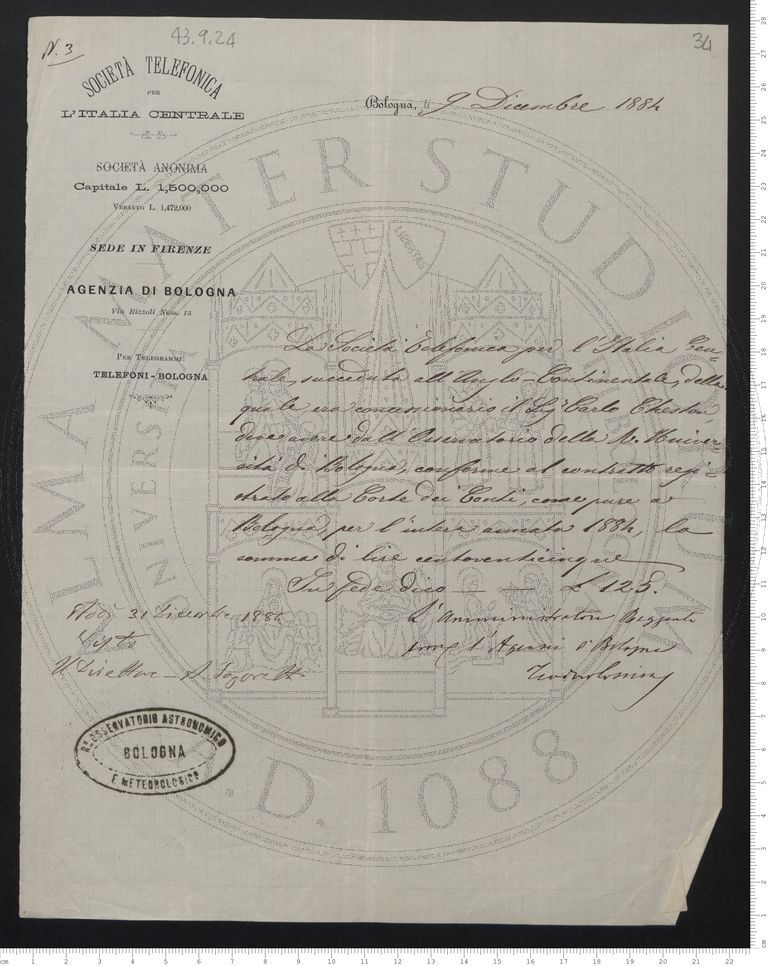 43.9.24
34
N. 3
SOCIETÀ TELEFONICA
PER
L'ITALIA CENTRALE
SOCIETÀ ANONIMA
Capitale L. 1,500,000
VERSATO L. 1,472,000
SEDE IN FIRENZE
AGENZIA DI BOLOGNA
Via Rizzoli Num. 13
PER TELEGRAMMI:
TELEFONI-BOLOGNA
Bologna, li 9 Dicembre 1884
La Società Telefonica per l'Italia Cen-
trale, succeduta all'Anglo-Continentale, della
quale era concessionario il Sig. Carlo
deve avere dall'Osservatorio della R. Univer-
sità di Bologna, conforme al contratto regi-
strato alla Corte dei Conti, come pure a
Bologna, per l'intera annata 1884, la
somma di lire centoventicinque
In fede dico — — L 125.
L'Amministratore
l' di Bologna
31 Dicembre 1884
Visto
Il Direttore
R. OSSERVATORIO ASTRONOMICO
BOLOGNA
E METEOROLOGICO
ALMA MATER STUDIORUM
UNIVERSITÀ
LIBERTAS
A.D. 1088